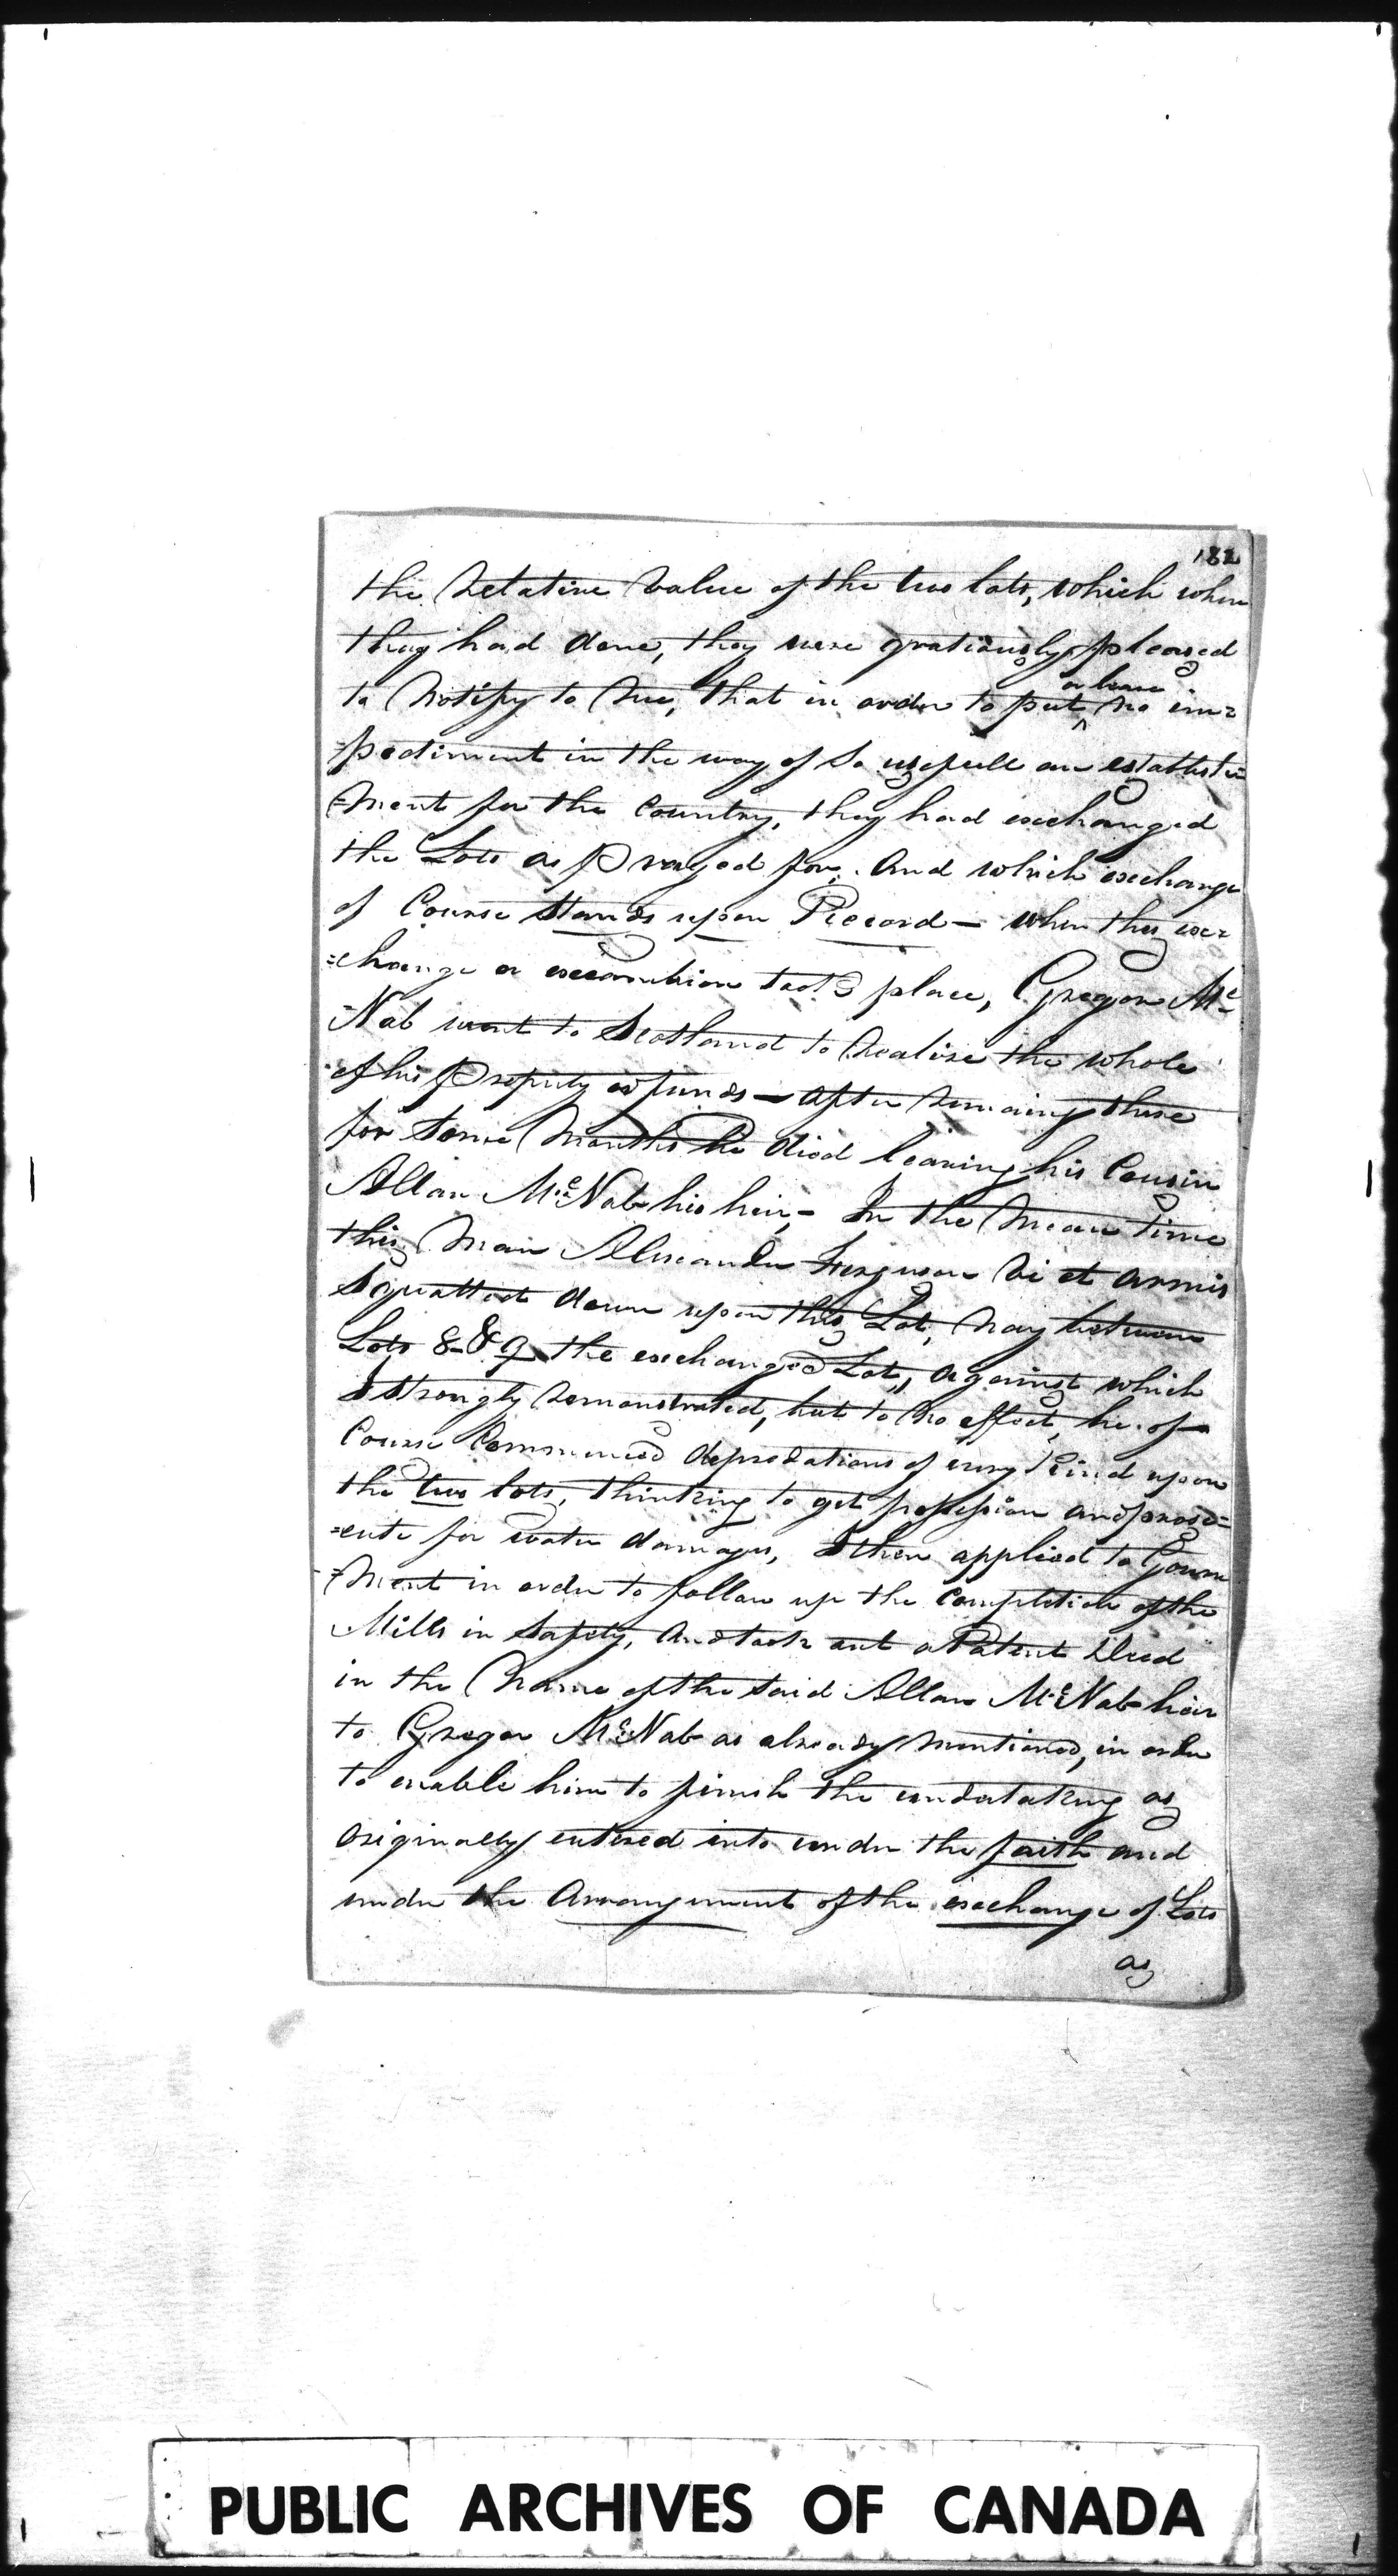 182
the relative value of the two lots, which when
they had done, they were gratiously pleased
to Notify to me, that in order to put no im=
or leave
=pediment in the way of so usefull an establish
=ment for the Country, they had exchanged
the Lots as prayed for. And which exchange
of Course stands upon Record — when this ex=
=change or excambion took place, Gregor Mc
=Nab went to Scotland to realise the whole
of his Property or funds — after remaing there
for some Months he died leaving his Cousin
Allan McNab his heir, — In the Mean time
this Man Alexander Ferguson vi et armis
Squatted down upon this Lot, nay between
Lots 8 & 9 the exchanged Lots, against which
I strongly remonstrated, but to no effect, he of
Course Commenced depredations of every kind upon
the two lots, thinking to get possession and prose=
=cute for water damages, I then applied to Govern
=ment in order to follow up the Completion of the
Mills in safety, and took out a Patent Deed
in the Name of the said Allan McNab heir
to Gregor McNab as already mentioned, in order
to enable him to finish the undertaking as
originally entered into under the faith and
under the Arrangement of the exchange of Lots
as
PUBLIC ARCHIVES OF CANADA